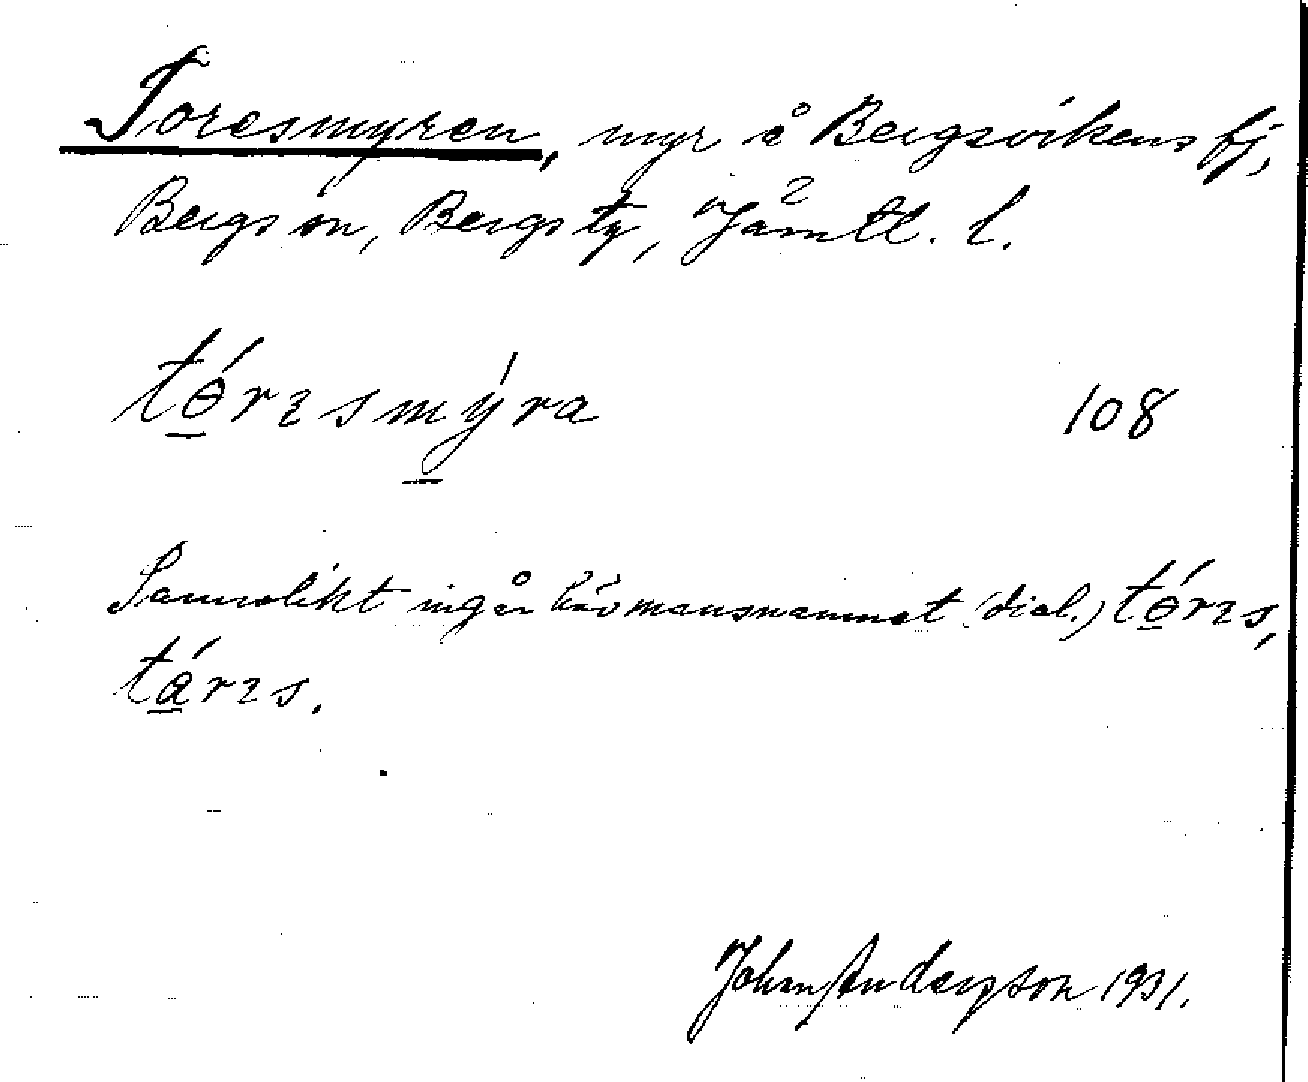 Toresmyren, myr å Bergsvikens fj,
Bergs sn, Bergs tg, Jämtl. l.
tó̱rɪsmý̱ra
108
Sannolikt ingår här mansnamnet (dial.) tó̱rɪs,
tá̱rɪs.
John Anderson 1931.